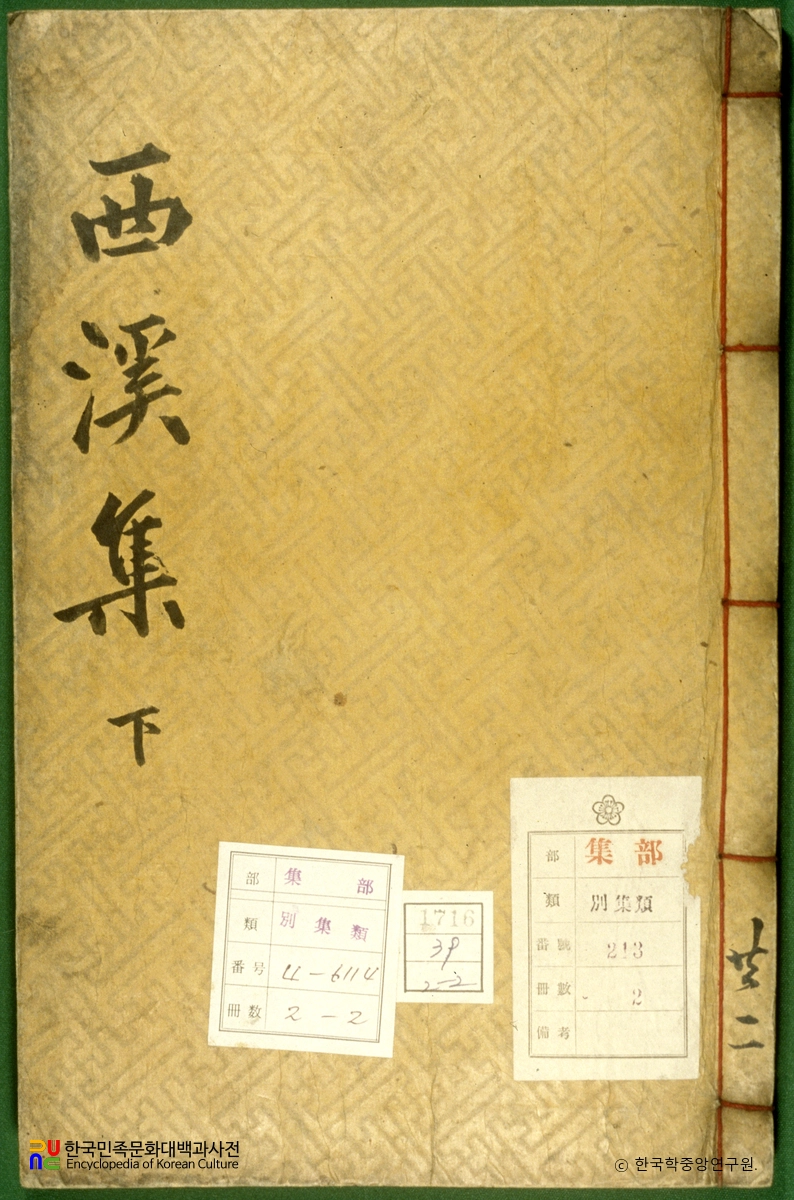 西溪集 下
部 集部
類 別集類
番号 4-6114
冊数 2-2
1716
39
2-2
部 集部
類 別集類
番號 213
冊數 2
備考
共二
한국민족문화대백과사전
Encyclopedia of Korean Culture
© 한국학중앙연구원.